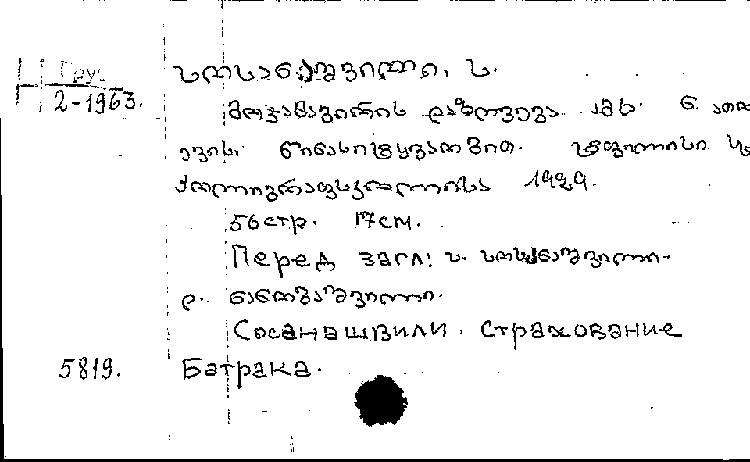 Груз
2-1963.
სოსანაშვილი, ს.
მოჯამაგირის დაზღვევა. ამხ. ნ. ათო
ევის წინასიტყვაობით. ტფილისი. სტ
1929.
56стр. 17см.
Перед загл: ს. სოსანაშვილი.
დ. ნანობაშვილი.
Сосанашвили. Страхование
5819. Батрака.